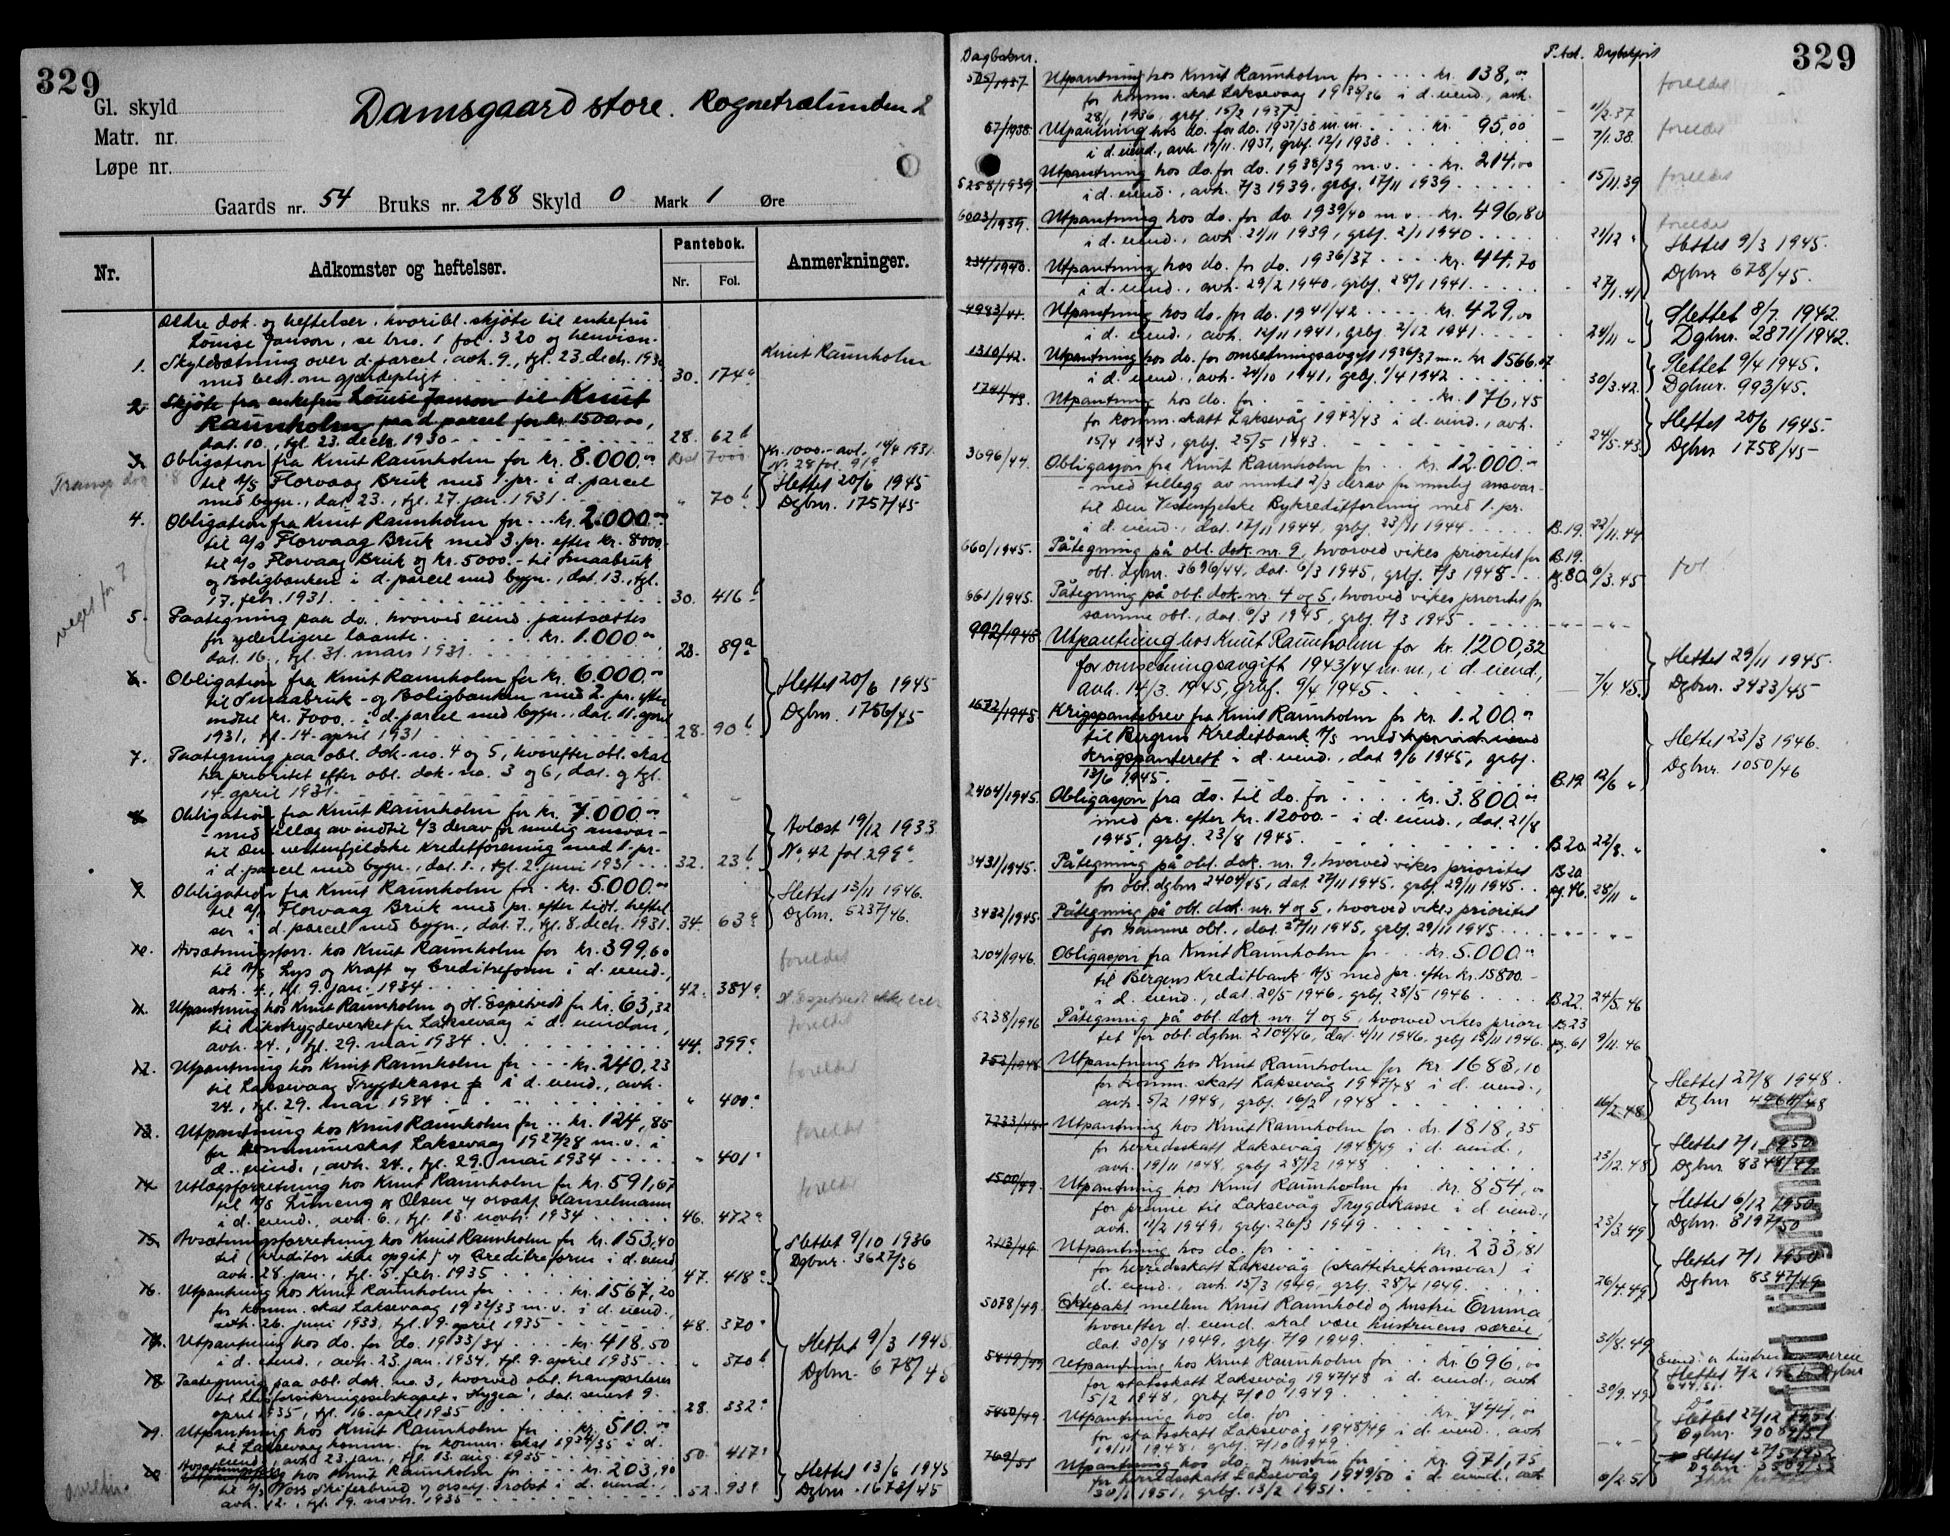 329
Gl. skyld
Matr. nr.
Løpe nr.
Damsgaard store. Rognetrælunden 2
Gaards nr. 54 Bruks nr. 288 Skyld 0 Mark 1 Øre
Nr.
Adkomster og heftelser.
Pantebok.
Nr. Fol.
Anmerkninger.
Ældre dok. og heftelser, hvoribl. skjøte til enkefru
Louise Janson, se bno. 1 fol. 320 og henvisn.
1. Skyldsætning over d. parcel, avh. 9., tgl. 23. decb. 1930
med best. om gjærdepligt 30. 174a
Knut Raunholm
2. Skjøte fra enkefru Louise Janson til Knut
Raunholm paa d. parcel for kr. 1500.00,
dat. 10., tgl. 23. decb. 1930 28. 62b
3. Obligation fra Knut Raunholm for kr. 8.000.00
til A/S Florvaag Bruk med 1. pr. i d. parcel
med bygn., dat. 23., tgl. 27. jan. 1931 " 70b
Rest 7000
Kr. 1000.- avl. 14/4 1931
No. 28 fol. 91a
Slettet 20/6 1945
Dgbnr. 1757/45
4. Obligation fra Knut Raunholm for kr. 2.000.00
til A/S Florvaag Bruk med 3. pr. efter kr. 8000
til A/S Florvaag Bruk og kr. 5000.- til Smaabruk
og Boligbanken i d. parcel med bygn., dat. 13., tgl.
17. feb. 1931 30. 416b
5. Paategning paa do., hvorved eiend. pantsættes
for yderligere laante kr. 1.000.00
dat. 16., tgl. 31. mars 1931 28. 89a
6. Obligation fra Knut Raunholm for kr. 6.000.00
til Smaabruk- og Boligbanken med 2. pr. efter
indtil kr. 7000.- i d. parcel med bygn., dat. 11. april
1931, tgl. 14. april 1931 28. 90b
Slettet 20/6 1945
Dgbnr. 1756/45
7. Paategning paa obl. dok. no. 4 og 5, hvorefter obl. skal
ha prioritet efter obl. dok. no. 3 og 6, dat. og tgl.
14. april 1931
8. Obligation fra Knut Raunholm for kr. 7.000.00
med tillæg av indtil 2/3 derav for mulig ansvar-
til Den vestenfjeldske Kreditforening med 1. pr.
i d. parcel med bygn., dat. 1., tgl. 2. juni 1931 32. 23b
Avlæst 19/12 1933
No. 42 fol. 299a
9. Obligation fra Knut Raunholm for kr. 5.000.00
til A/S Florvaag Bruk med pr. efter tidl. heftel
ser i d. parcel med bygn., dat. 7., tgl. 8. decb. 1931 34. 63a
Slettet 13/11 1946.
Dgbnr. 5237/46.
10. Avsætningsforr. hos Knut Raunholm for kr. 399,60
til A/S Lys og Kraft og Creditreform i d. eiend.,
avh. 4., tgl. 9. jan. 1934 42. 384a
foreldet
11. Utpantning hos Knut Raunholm og H. Espetvedt for kr. 63,32
til Rikstrygdeverket for Laksevaag i d. eiendom,
avh. 24., tgl. 29. mai 1934 44. 399a
H. Espetvedt ikke eier
foreldet
12. Utpantning hos Knut Raunholm for kr. 240,23
til Laksevaag Trygdekasse i d. eiend., avh.
24., tgl. 29. mai 1934 " 400a
foreldet
13. Utpantning hos Knut Raunholm for kr. 124,85
for kommuneskat Laksevaag 1927/28 m.v. i
d. eiend., avh. 24., tgl. 29. mai 1934 " 401a
foreldet
14. Utlægsforretning hos Knut Raunholm for kr. 591,67
til A/S Limeng & Olsen og orsakf. Hanselmann
i d. eiend., avh. 6., tgl. 13. novb. 1934 46. 472a
foreldet
15. Avsætningsforretning hos Knut Raunholm for kr. 153,40
til (kreditor ikke opgit) og Creditreform i d. eiend
avh. 28. jan., tgl. 5. feb. 1935 47. 418a
Slettet 9/10 1936
Dgbnr. 3627/36
16. Utpantning hos Knut Raunholm for kr. 1567,20
for komm. skat Laksevaag 1932/33 m.v. i d. eiend.,
avh. 26. juni 1933, tgl. 9. april 1935 48. 370a
17. Utpantning hos do. for do. 1933/34 kr. 418.50
i d. eiend., avh. 23. jan. 1934, tgl. 9. april 1935 " 370b
Slettet 9/3 1945
Dgbnr. 678/45
18. Paategning paa obl. dok. no. 3, hvorved obl. transporteres
til Livsforsikringsselskapet "Hygea", dat. senest 9.
april 1935, tgl. 16. april 1935 28. 332a
19. Utpantning hos Knut Raunholm for kr. 510.00
til Laksevaag komm. for komm. skat 1934/35 i d.
eiend., avh. 23. jan., tgl. 13. aug. 1935 50. 417a
20. Avsætningsforr. hos Knut Raunholm for kr. 203,90
til A/S Voss Skiferbrud og orsakf. Probst i d. eiend.,
avh. 12., tgl. 19. novb. 1935 52. 93a
Slettet 13/6 1945
Dgbnr. 1673/45
329
Dagboknr. P.bok. Dagbokført
525/1937 Utpantning hos Knut Raunholm for kr. 138,00
for komm. skat Laksevaag 1935/36 i d. eiend., avh.
28/1 1936, grbf. 15/2 1937 11/2.37
foreldet
67/1938 Utpantning hos do. for do. 1937/38 m.m. kr. 95,00
i d. eiend., avh. 17/11. 1937, grbf. 12/1 1938 7/1.38.
foreldet
5258/1939 Utpantning hos do. for do. 1938/39 m.v. kr. 214,00
i d. eiend., avh. 7/3 1939, grbf. 17/11 1939 15/11.39
foreldet
6003/1939. Utpantning hos do. for do. 1939/40 m.v. kr. 496,80
i d. eiend., avh. 21/11 1939, grbf. 2/1 1940 21/12 "
foreldet
Slettet 9/3 1945.
Dgbnr 678/45.
234/1940. Utpantning hos do. for do. 1936/37 kr. 44,70
i d. eiend., avh. 29/2 1940, grbf. 28/1 1941 27/1.41
4983/41. Utpantning hos do. for do. 1941/42 kr. 429,00
i d. eiend., avh. 12/11 1941, grbf. 2/12 1941 24/11 "
Slettet 8/7. 1942.
Dgbnr. 2871/1942.
1310/42. Utpantning hos do. for omsetningsavgift 1936/37 m.v. kr. 1566,07
i d. eiend., avh. 24/10 1941, grbf. 1/4 1942 30/3.42.
Slettet 9/4 1945.
Dgbnr. 993/45.
1741/43. Utpantning hos do. for kr. 176,45
for komm. skatt Laksevåg 1942/43 i d. eiend., avh.
15/4 1943, grbf. 25/5 1943 24/5.43
Slettet 20/6 1945.
Dgbnr 1758/45
3696/44. Obligasjon fra Knut Raunholm for kr. 12.000.-
- med tillegg av inntil 2/3 derav for mulig ansvar-
til Den Vestenfjelske Bykredittforening med 1. pr.
i d. eiend., dat. 17/11 1944, grbf. 23/11 1944 B.19. 22/11.44.
660/1945. Påtegning på obl. dok. nr. 9, hvorved vikes prioritet for
obl. dgbnr. 3696/44, dat. 6/3 1945, grbf. 7/3 1945 B.19. pg.80. 6/3.45
661/1945. Påtegning på obl. dok. nr. 4 og 5, hvorved vikes prioritet for
samme obl., dat. 6/3 1945, grbf. 7/3 1945
992/1945 Utpantning hos Knut Raunholm for kr. 1200,32
for omsetningsavgift 1943/44 m.m., i d. eiend.,
avh. 14/3. 1945, grbf. 9/4 1945 7/4 45.
Slettet 29/11 1945.
Dgbnr. 3433/45
1672/1945 Krigspantebrev fra Knut Raunholm for kr. 1.200.00
til Bergens Kreditbank A/S med
krigspanterett i d. eiend., dat 9/6 1945, grbf.
13/6 1945. B.19. 12/6 "
Slettet 23/3 1946.
Dgbnr. 1050/46
2404/1945. Obligasjon fra do. til do. for kr. 3.800.00
med pr. efter kr. 12000.- i d. eiend., dat. 21/8
1945, grbf. 23/8 1945. B.20. 22/8. "
3431/1945. Påtegning på obl. dok. nr. 9, hvorved vikes prioritet
for obl. dgbnr 2404/45, dat. 27/11 1945, grbf. 29/11 1945 B.20 pg.46. 28/11 "
3432/1945. Påtegning på obl. dok. nr. 4 og 5, hvorved vikes prioritet
for samme obl., dat. 27/11 1945, grbf. 29/11 1945
2104/1946. Obligasjon fra Knut Raunholm for kr. 5.000.00
til Bergens Kreditbank A/S med pr. efter kr. 15800.-
i d. eiend., dat. 20/5 1946, grbf. 28/5 1946 B.22. 24/5.46
5238/1946 Påtegning på obl. dok. nr. 4 og 5, hvorved vikes priori
tet for obl. dgbnr. 2104/46, dat. 4/11 1946, grbf. 13/11 1946. B.23 pg.61 9/11.46
752/1948 Utpantning hos Knut Raunholm for kr 1683,10
for komm. skatt Laksevåg 1947/48 i d. eiend.,
avh. 5/2 1948, grbf. 16/2 1948 16/2.48.
Slettet 27/8 1948.
7233/48. Utpantning hos Knut Raunholm for kr. 1818,35
for herredsskatt Laksevåg 1948/49 i d. eiend.,
avh. 19/11 1948, grbf. 28/12 1948 23/12.48
Slettet 7/1 1950
Dgbnr 8348/49
1500/49. Utpantning hos Knut Raunholm for kr. 854,00
for premie til Laksevåg Trygdekasse i d. eiend.,
avh. 11/2 1949, grbf. 26/3 1949 23/3.49
Slettet 6/12 1950
Dgbnr. 8197/50
2113/49. Utpantning hos do. for kr. 233,81
for herredsskatt Laksevåg (skattetrekkansvar) i
d. eiend., avh. 15/3 1949, grbf. 28/4 1949. 26/4.49
Slettet 7/1 1950
Dgbnr 8347/49
5078/49. Ektepakt mellem Knut Raunhold og hustru Emma,
hvorefter d. eiend. skal være hustruens særeie,
dat. 30/8 1949, grbf. 7/9 1949. 31/8.49
Eiend. er hustruens særeie
5849/49 Utpantning hos Knut Raunholm for kr. 696,00
for statsskatt Laksevåg 1947/48 i d. eiend., avh
5/2 1948, grbf. 7/10 1949 30/9.49
5850/49. Utpantning hos do. for kr. 744,00
for statsskatt Laksevåg 1948/49 i d. eiend., avh
19/11 1948, grbf. 7/10 1949.
Slettet 27/12 1951
769/51 Utpantning hos do. og hustru for kr. 971,75
for herredsskatt Laksevåg 1949/50 i d. eiend., avh
30/1 1951, grbf. 13/2 1951.